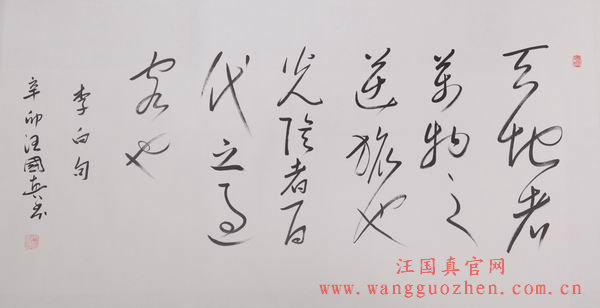 天地者
萬物之
逆旅也
光陰者百
代之過
客也
李白句
辛卯汪國真書
汪国真官网
www.wangguozhen.com.cn